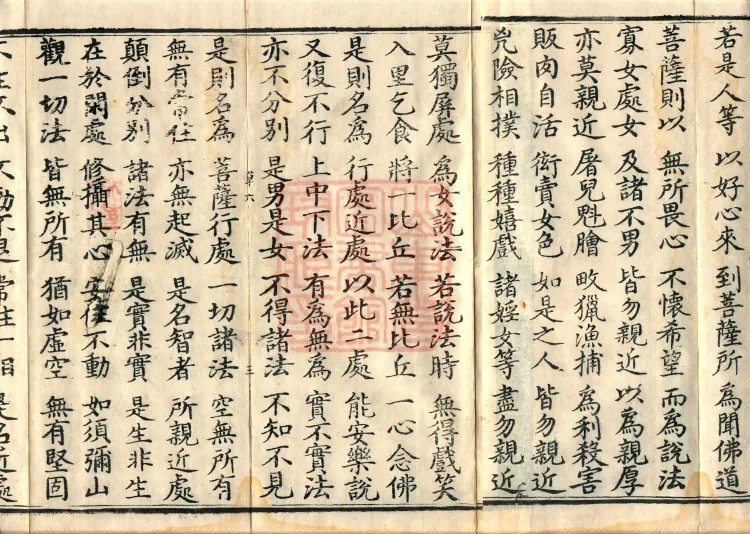 若是人等 以好心來 到菩薩所 為聞佛道
菩薩則以 無所畏心 不懷希望 而為說法
寡女處女 及諸不男 皆勿親近 以為親厚
亦莫親近 屠兒魁膾 畋獵漁捕 為利殺害
販肉自活 衒賣女色 如是之人 皆勿親近
兇險相撲 種種嬉戲 諸婬女等 盡勿親近
莫獨屏處 為女說法 若說法時 無得戲笑
入里乞食 將一比丘 若無比丘 一心念佛
是則名為 行處近處 以此二處 能安樂說
又復不行 上中下法 有為無為 實不實法
亦不分別 是男是女 不得諸法 不知不見
三
是則名為 菩薩行處 一切諸法 空無所有
無有常住 亦無起滅 是名智者 所親近處
顛倒分別 諸法有無 是實非實 是生非生
在於閑處 修攝其心 安住不動 如須彌山
觀一切法 皆無所有 猶如虛空 無有堅固
不生不出 不動不退 常住一相 是名近處